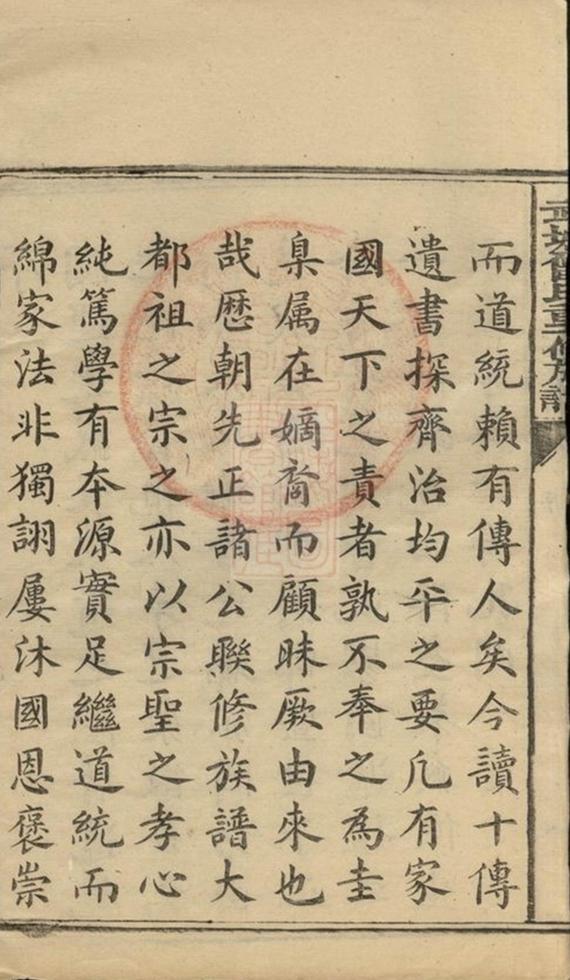 武城曾氏重修族譜
而道統賴有傳人矣今讀十傳
遺書探齊治均平之要凡有家
國天下之責者孰不奉之為圭
臬属在嫡裔而顧昧厥由來也
哉歷朝先正諸公聯修族譜大
都祖之宗之亦以宗聖之孝心
純篤學有本源實足繼道統而
綿家法非獨詡屢沐國恩褒崇